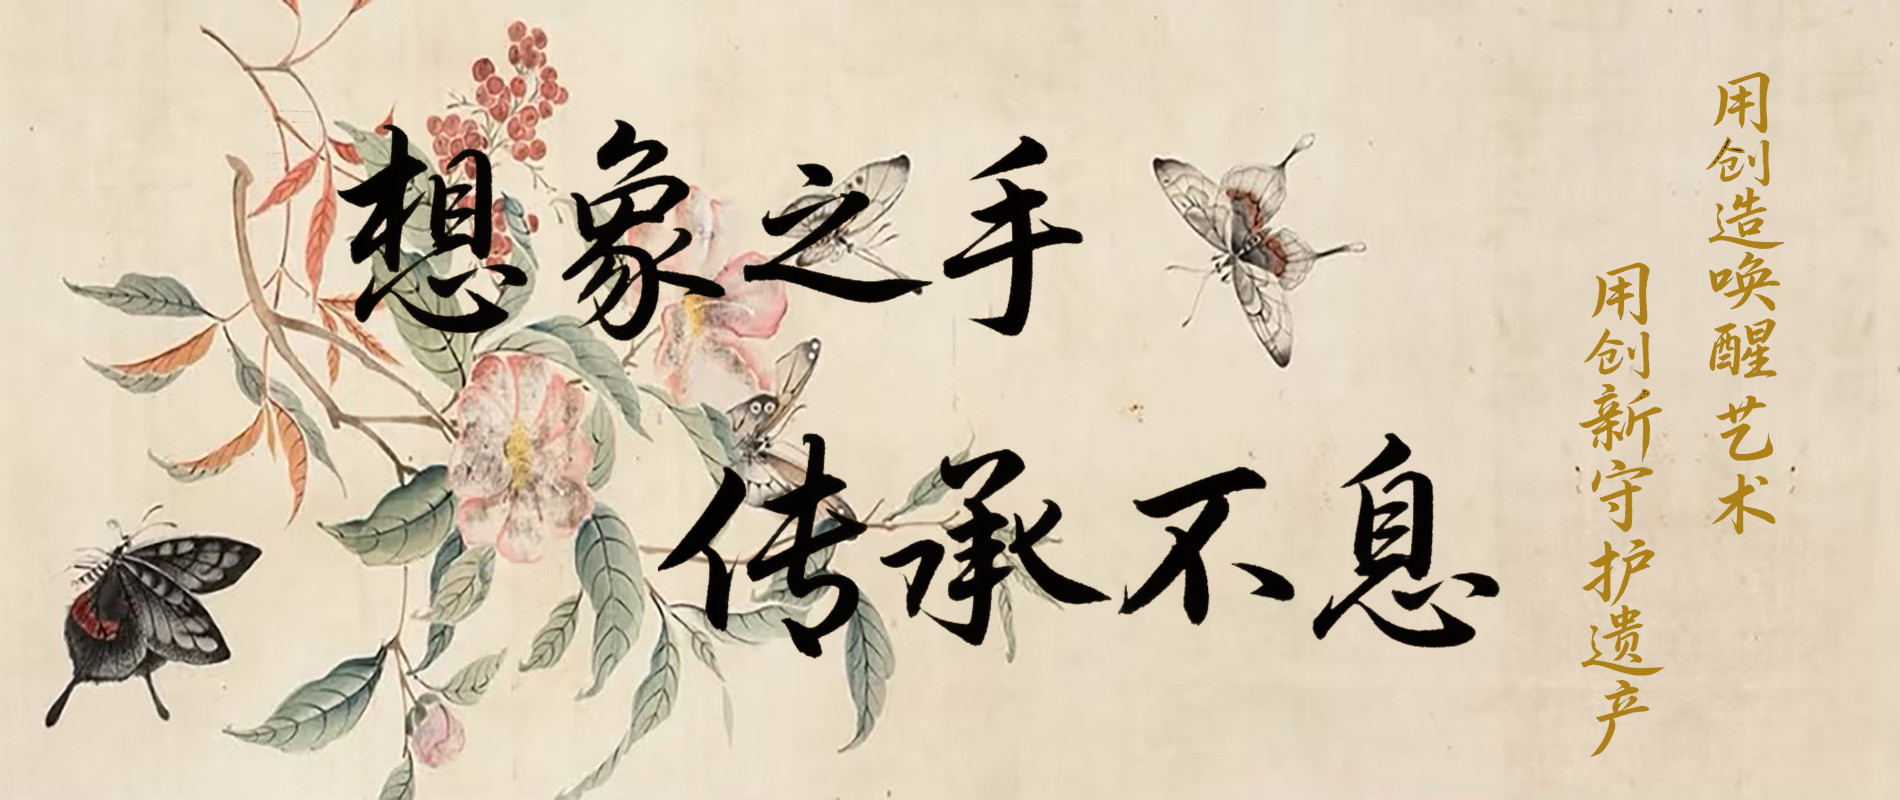 想象之手
传承不息
用创造唤醒艺术
用创新守护遗产